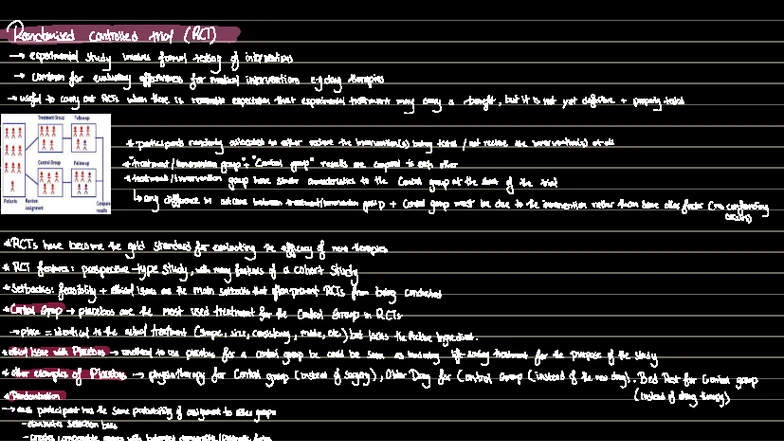 Randomised controlled trial (RCT)
→ experimental study involves formal testing of interventions
→ common for evaluating effectiveness for medical interventions e.g. drug therapies
→ useful to carry out RCTs when there is reasonable expectation that experimental treatment may carry a benefit, but it is not yet definitive + properly tested
Treatment Group Follow-up
* participants randomly allocated to either receive the intervention(s) being tested / not receive the intervention(s) at all
* "treatment/intervention group" + "Control group" results are compared to each other
Control Group Follow-up
* treatment/intervention group have similar characteristics to the control group at the start of the trial
Patients Random assignment Compare results
↳ any difference in outcome between treatment/intervention group + Control group must be due to the intervention rather than some other factor (no confounding
* RCTs have become the gold standard for evaluating the efficacy of new therapies
* RCT features: prospective-type study, with many features of a cohort study
* Setbacks: feasibility + ethical issues are the main setbacks that often prevent RCTs from being conducted
* Control Group → placebos are the most used treatment for the Control Group in RCTs
→ place = identical to the actual treatment (shape, size, consistency, route, etc) but lacks the Active Ingredient.
* ethical Issue with Placebos → unethical to use placebos for a control group bc could be seen as hindering life-saving treatment for the purpose of the study
* other examples of Placebos → physiotherapy for Control group (instead of surgery), Older Drug for Control Group (instead of the new drug), Bed Rest for Control group
(instead of drug therapy)
* Randomisation
→ each participant has the same probability of assignment to either group
- eliminates selection bias
- creates comparable groups with balanced